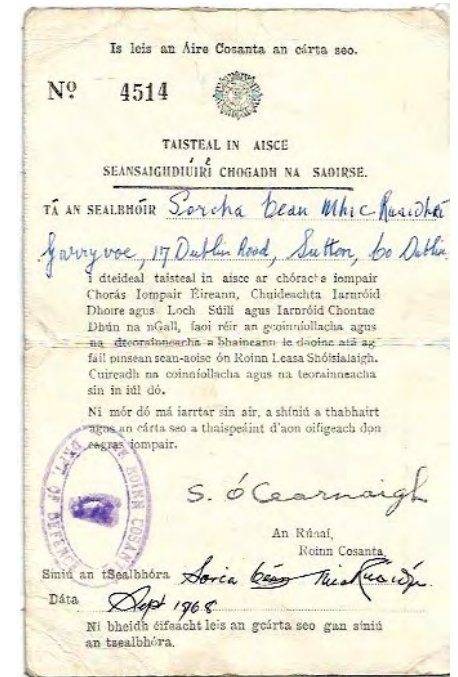 Is leis an Aire Cosanta an cárta seo.
Nº 4514
TAISTEAL IN AISCE
SEANSAIGHDIÚIRÍ CHOGADH NA SAOIRSE.
TÁ AN SEALBHÓIR Sorcha bean Mhic Ruaidhrí
Garryvoe, 17 Dublin Road, Sutton, Co Dublin
i dteideal taisteal in aisce ar chóracha iompair
Chorás Iompair Éireann, Chuideachta Iarnróid
Dhoire agus Loch Súilí agus Iarnróid Chontae
Dhún na nGall, faoi réir an gcoinníollacha agus
na dteorainneacha a bhaineann le daoine atá ag
fáil pinsean sean-aoise ón Roinn Leasa Shóisialaigh.
Cuireadh na coinníollacha agus na teorainneacha
sin in iúl dó.
Ní mór dó má iarrtar sin air, a shíniú a thabhairt
agus an cárta seo a thaispeáint d'aon oifigeach don
eagras iompair.
AN ROINN COSANTA
DEPT. OF DEFENCE
S. Ó Cearnaigh
An Rúnaí,
Roinn Cosanta,
Síniú an tSealbhóra Sorca bean Mhic Ruaidhrí
Dáta Sept 1968
Ní bheidh éifeacht leis an gcárta seo gan síniú
an tsealbhóra.